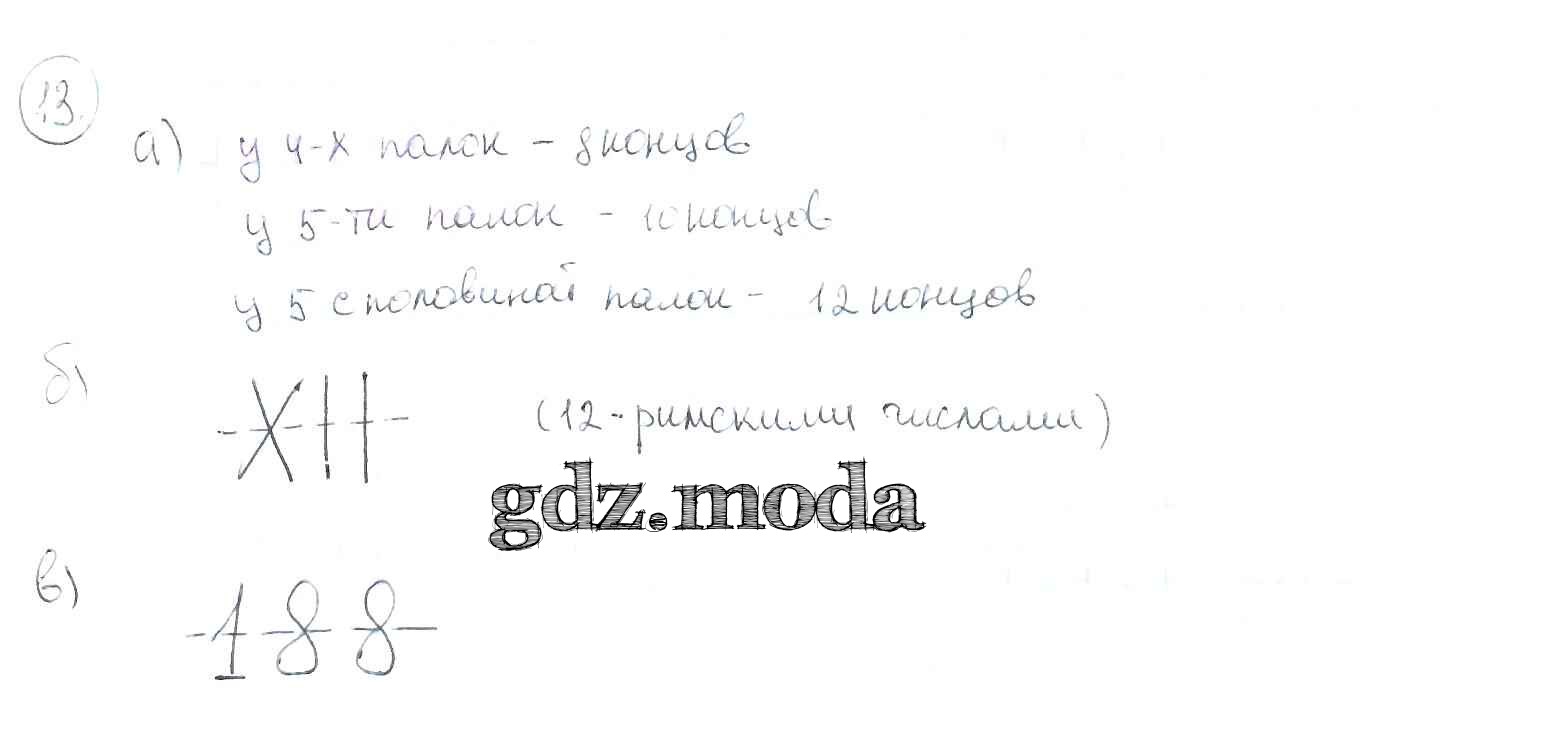 13.
а) у 4-х палок - 8 концов
у 5-ти палок - 10 концов
у 5 с половиной палок - 12 концов
б) XII (12 - римскими числами)
gdz.moda
в) 188